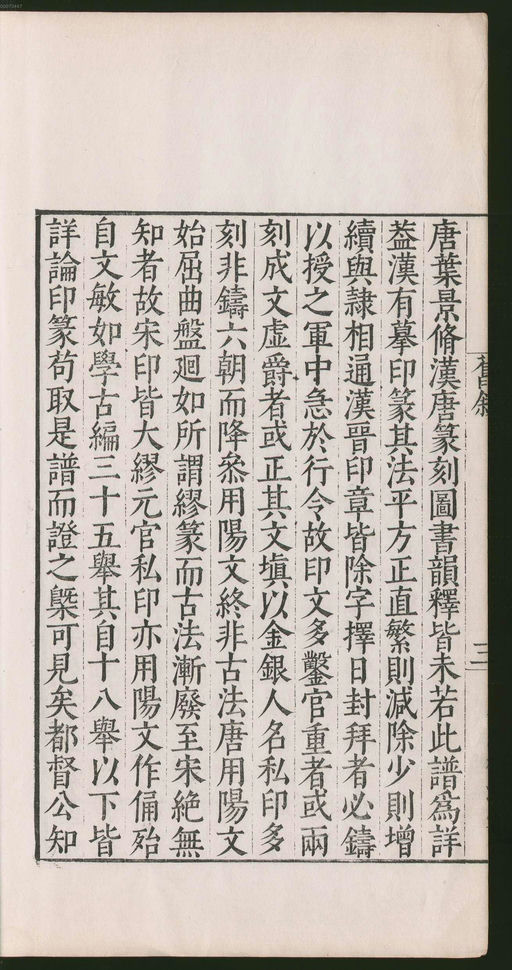 舊敘
三
唐葉景脩漢唐篆刻圖書韻釋皆未若此譜為詳
葢漢有摹印篆其法平方正直繁則減除少則增
續與隷相通漢晉印章皆除字擇日封拜者必鑄
以授之軍中急於行令故印文多鑿官重者或兩
刻成文虛爵者或正其文塡以金銀人名私印多
刻非鑄六朝而降叅用陽文終非古法唐用陽文
始屈曲盤廻如所謂繆篆而古法漸廢至宋絶無
知者故宋印皆大繆元官私印亦用陽文作俑殆
自文敏如學古編三十五舉其自十八舉以下皆
詳論印篆苟取是譜而證之槩可見矣都督公知
00073447